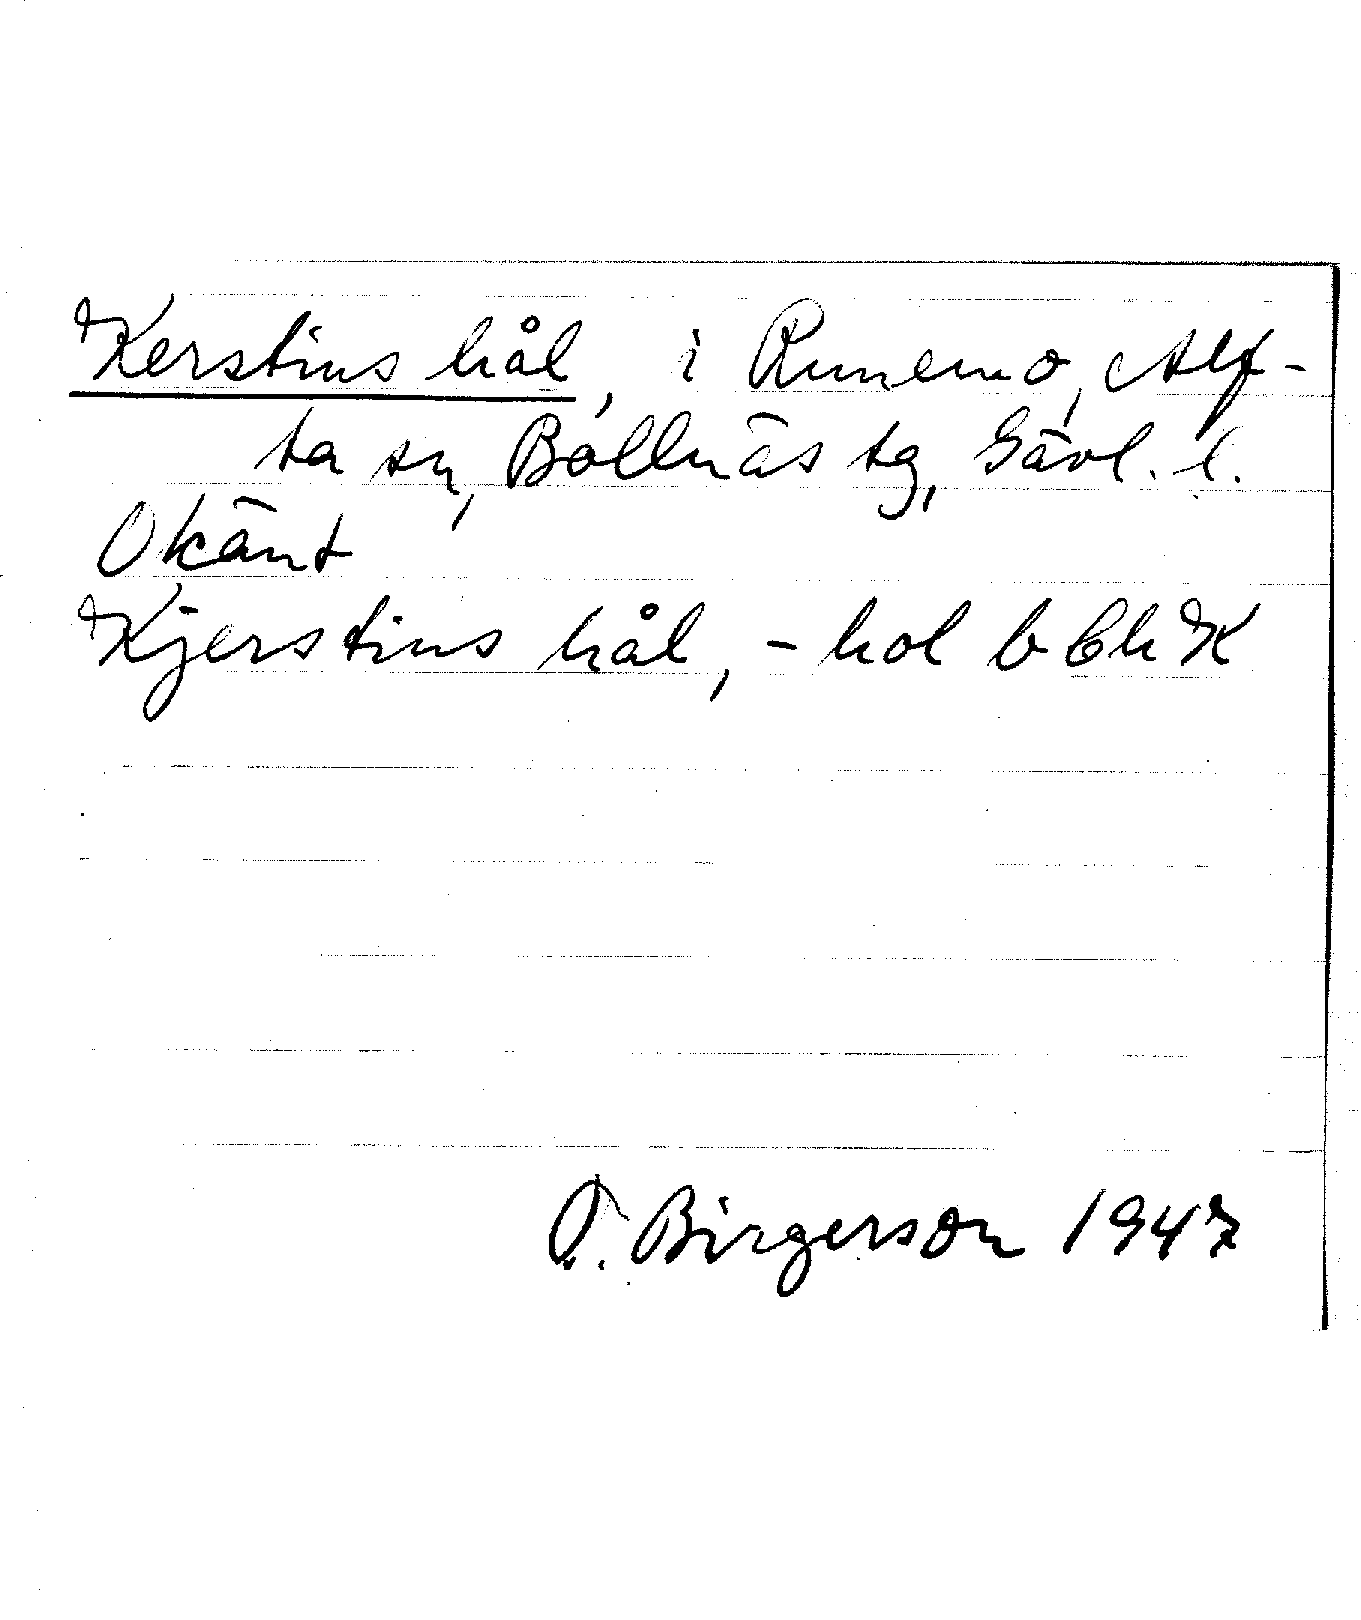 Kerstins hål, i Runemo, Alf-
ta sn, Bollnäs tg, Gävl. l.
Okänt
Kjerstins hål, - hol b Chk
O. Birgerson 1947